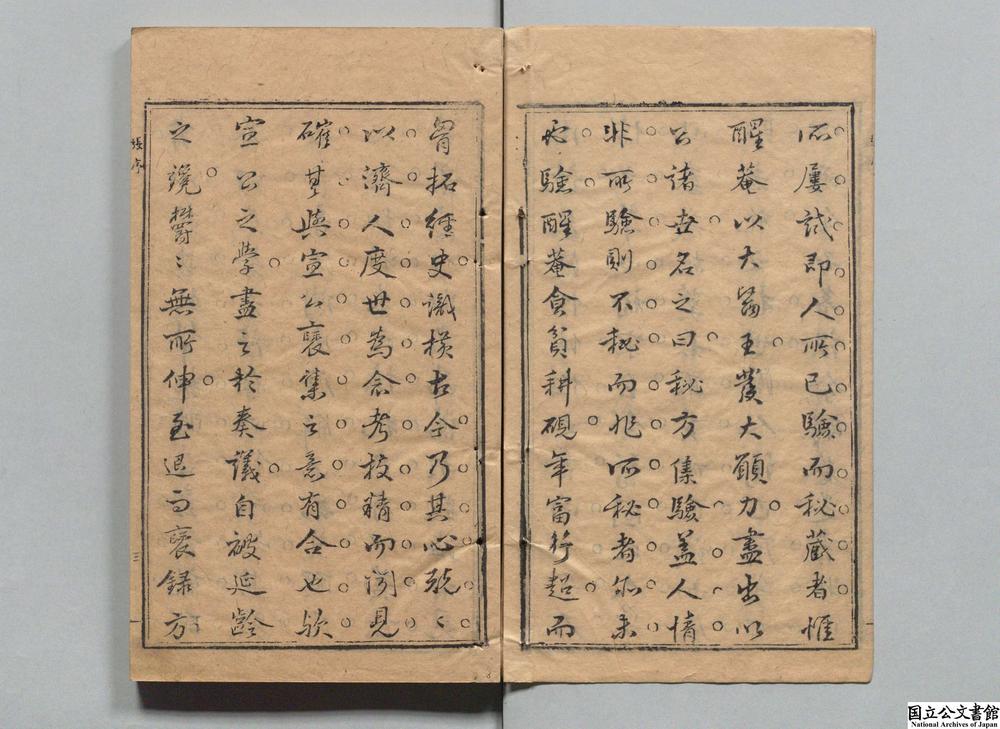 所屢試即人所已驗而秘蔵者惟
醒菴以大醫王發大願力盡出以
公諸世名之曰秘方集驗盖人情
非所驗則不秘而非所秘者亦未
必驗醒菴食貧耕硯年富行超而
胷拓經史識橫古今乃其心兢〻
以濟人度世為念考校精而聞見
確其與宣公裒集之意有合也欤
宣公之學盡之於奏議自被延齡
之讒欝〻無所伸至退而裒録方
張序
三
国立公文書館
National Archives of Japan